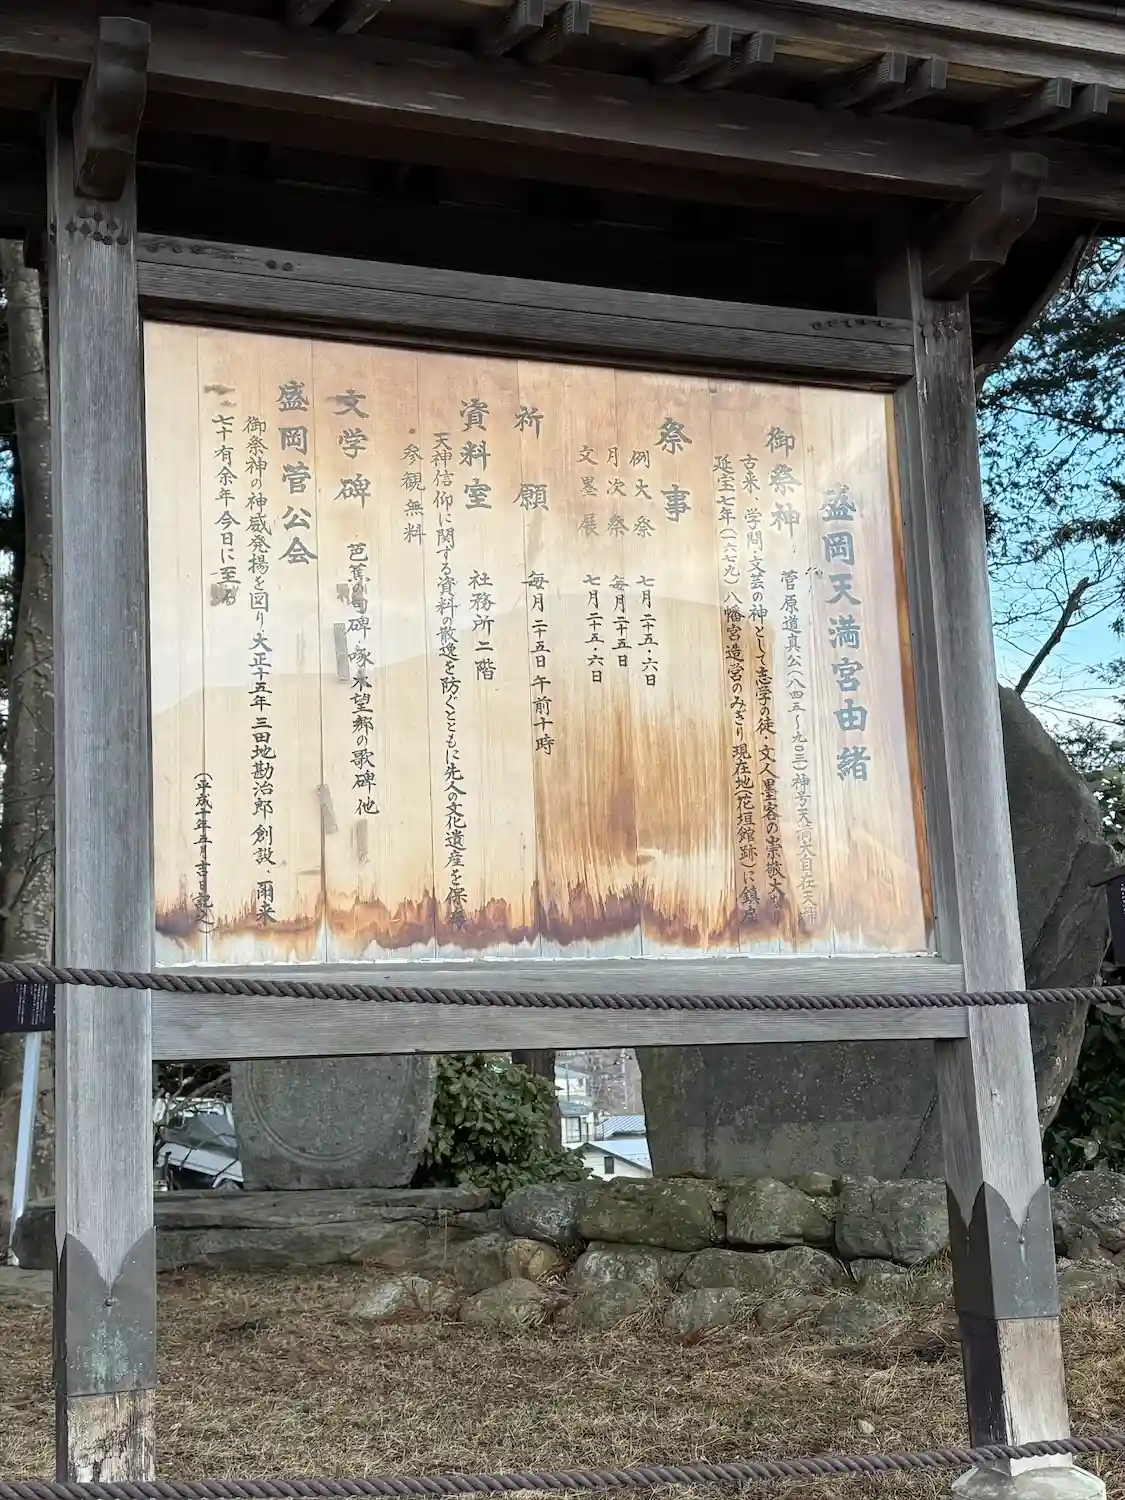 盛岡天満宮由緒
御祭神 菅原道真公(八四五~九〇三)神号天満大自在天神
古来、学問・文芸の神として志学の徒・文人墨客の崇敬大
延宝七年(一六七九)八幡宮造営のみぎり現在地(花垣館跡)に鎮座
祭事
例大祭 七月二十五・六日
月次祭 毎月二十五日
文墨展 七月二十五・六日
祈願 毎月二十五日午前十時
資料室 社務所二階
天神信仰に関する資料の散逸を防ぐとともに先人の文化遺産を保存
参観無料
文学碑 芭蕉の句碑・啄木望郷の歌碑他
盛岡菅公会
御祭神の神威発揚を図り大正十五年三田地勘治郎創設、爾来
七十有余年今日に至る
(平成十年五月吉日記之)